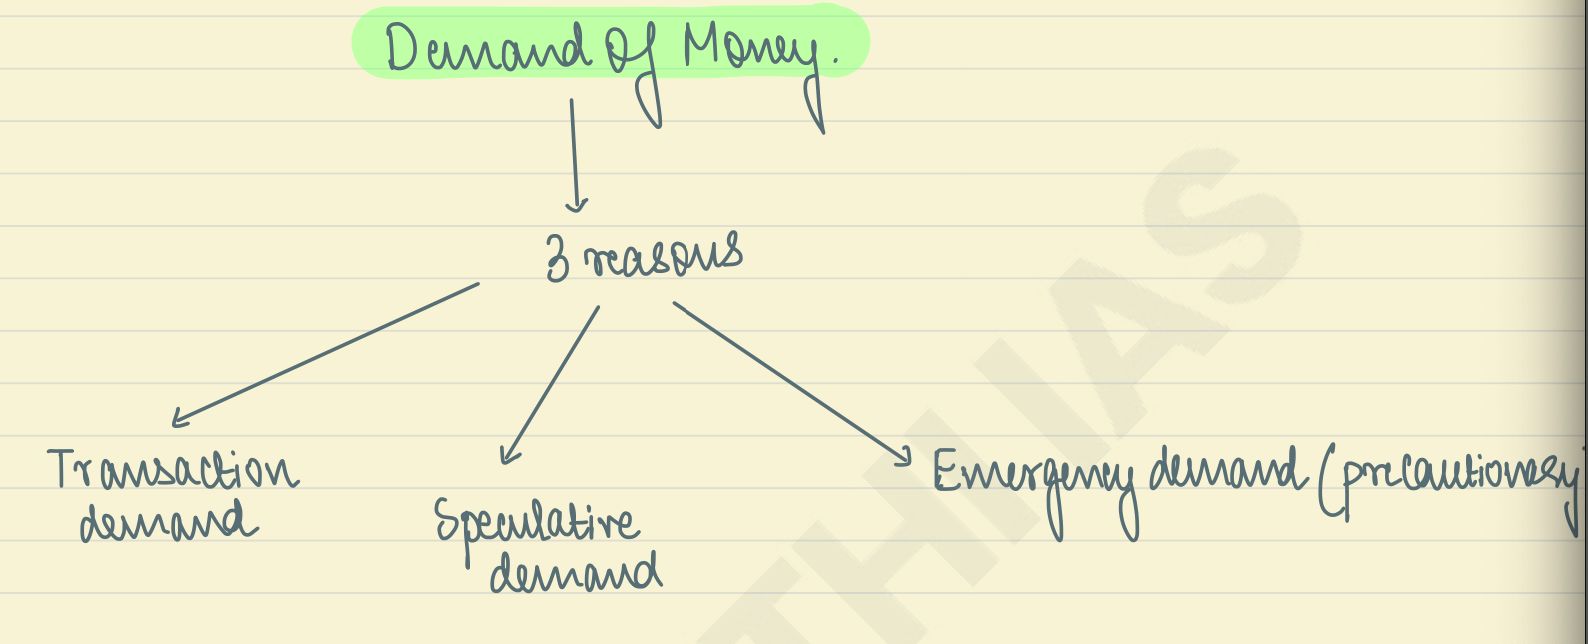 Demand of Money.
3 reasons
Transaction
demand
Speculative
demand
Emergency demand (precautionary
THIAS